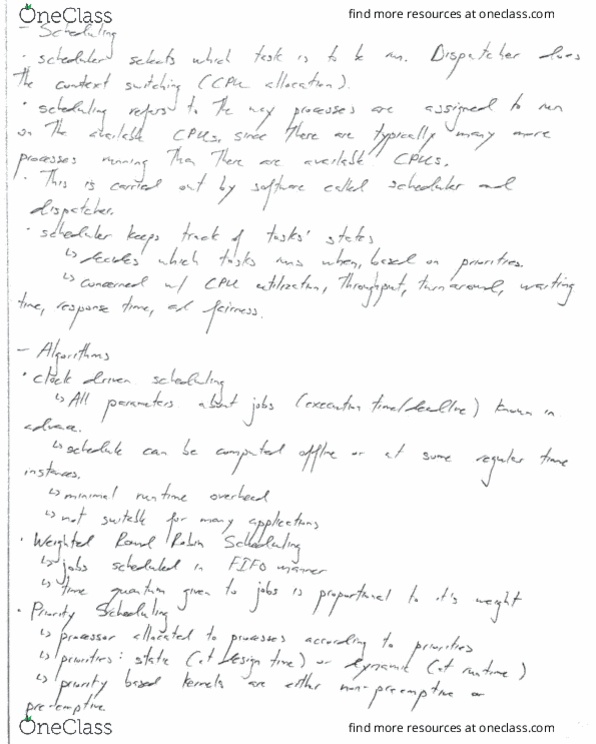 OneClass
find more resources at oneclass.com
- Scheduling
· scheduler selects which task is to be run. Dispatcher does
the context switching (CPU allocation).
· scheduling refers to the way processes are assigned to run
on the available CPUs, since there are typically many more
processes running than there are available CPUs.
· This is carried out by software called scheduler and
dispatcher.
· scheduler keeps track of tasks' states
↳ decides which tasks runs when, based on priorities.
↳ concerned w/ CPU utilization, throughput, turnaround, waiting
time, response time, and fairness.
- Algorithms
· clock driven scheduling
↳ All parameters about jobs (execution time/deadline) known in
advance.
↳ schedule can be computed offline or at some regular time
instances.
↳ minimal runtime overhead
↳ not suitable for many applications
· Weighted Round Robin Scheduling
↳ jobs scheduled in FIFO manner
↳ time quantum given to jobs is proportional to it's weight
· Priority Scheduling
↳ processor allocated to processes according to priorities
↳ priorities: static (at design time) or dynamic (at runtime)
↳ priority based kernels are either non-preemptive or
pre-emptive
OneClass
find more resources at oneclass.com